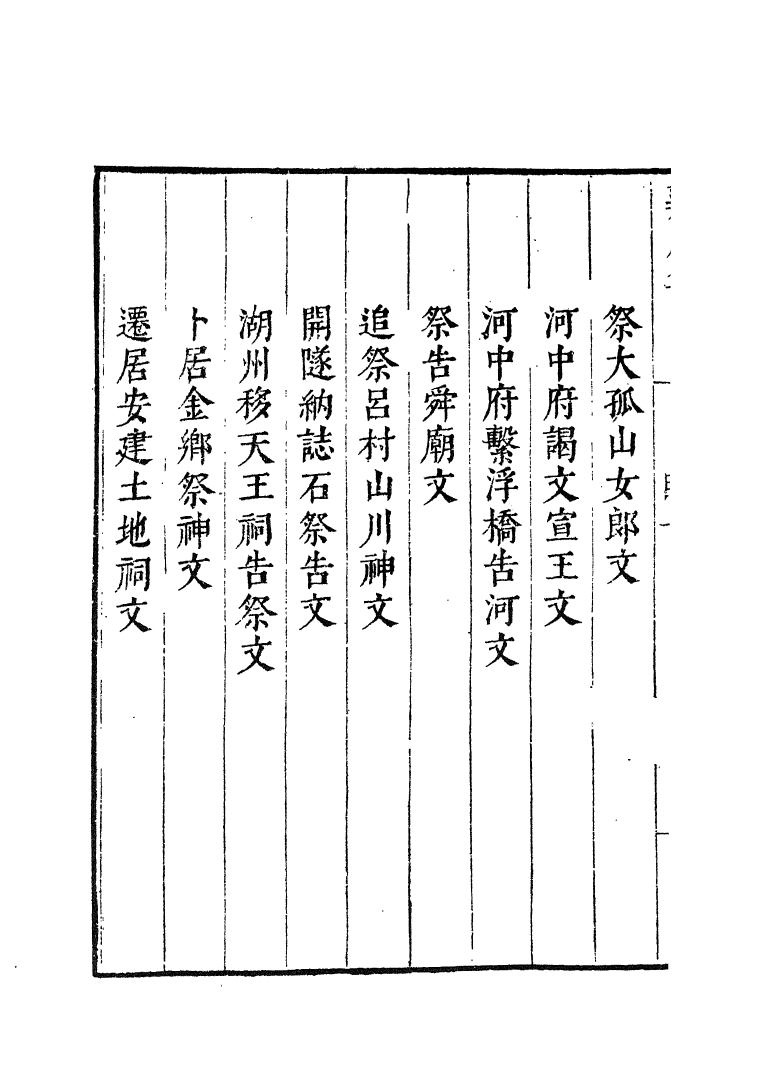 祭大孤山女郎文
河中府謁文宣王文
河中府繫浮橋告河文
祭告舜廟文
追祭呂村山川神文
開隧納誌石祭告文
湖州移天王祠告祭文
卜居金鄉祭神文
遷居安建土地祠文